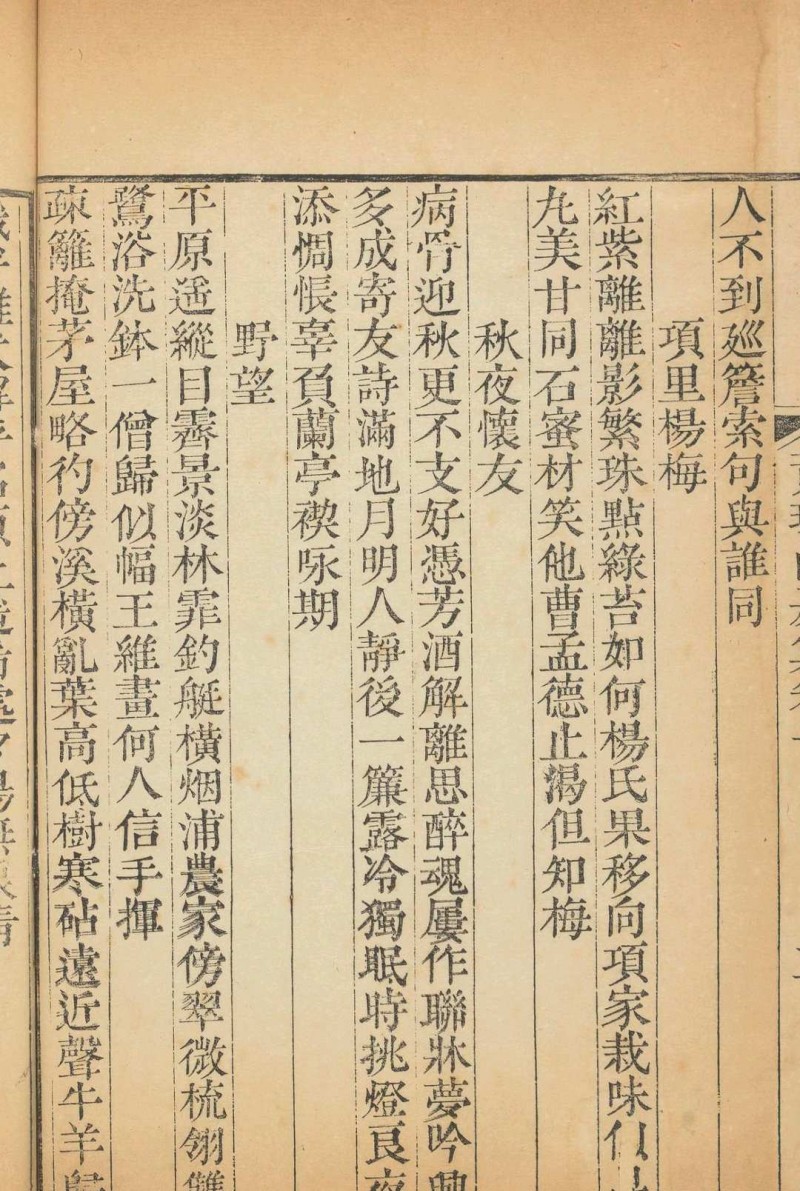 人不到廵簷索句與誰同
項里楊梅
紅紫離離影繁珠點綠苔如何楊氏果移向項家栽味似
九美甘同石蜜材笑他曹孟德止渴但知梅
秋夜懷友
病骨迎秋更不支好憑芳酒解離思醉魂屢作聯牀夢吟興
多成寄友詩滿地月明人靜後一簾露冷獨眠時挑燈良夜
添惆悵辜負蘭亭禊咏期
野望
平原遥縱目霽景淡林霏釣艇橫烟浦農家傍翠微梳翎雙
鷺浴洗鉢一僧歸似幅王維畫何人信手揮
疎籬掩茅屋略彴傍溪橫亂葉高低樹寒砧遠近聲牛羊歸